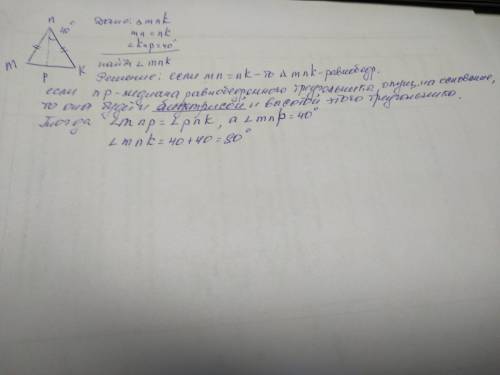 n
40°
M
P
K
Дано: Δ mnk
mn = nk
∠knp = 40°
найти ∠ mnk
Решение: если mn = nk - то Δ mnk - равнобедр.
если np - медиана равнобедренного треугольника, опущ. на основание,
то она будет и биктрисой и высотой этого треугольника.
Тогда ∠mnp = ∠pnk, а ∠mnp = 40°
∠mnk = 40+40 = 80°